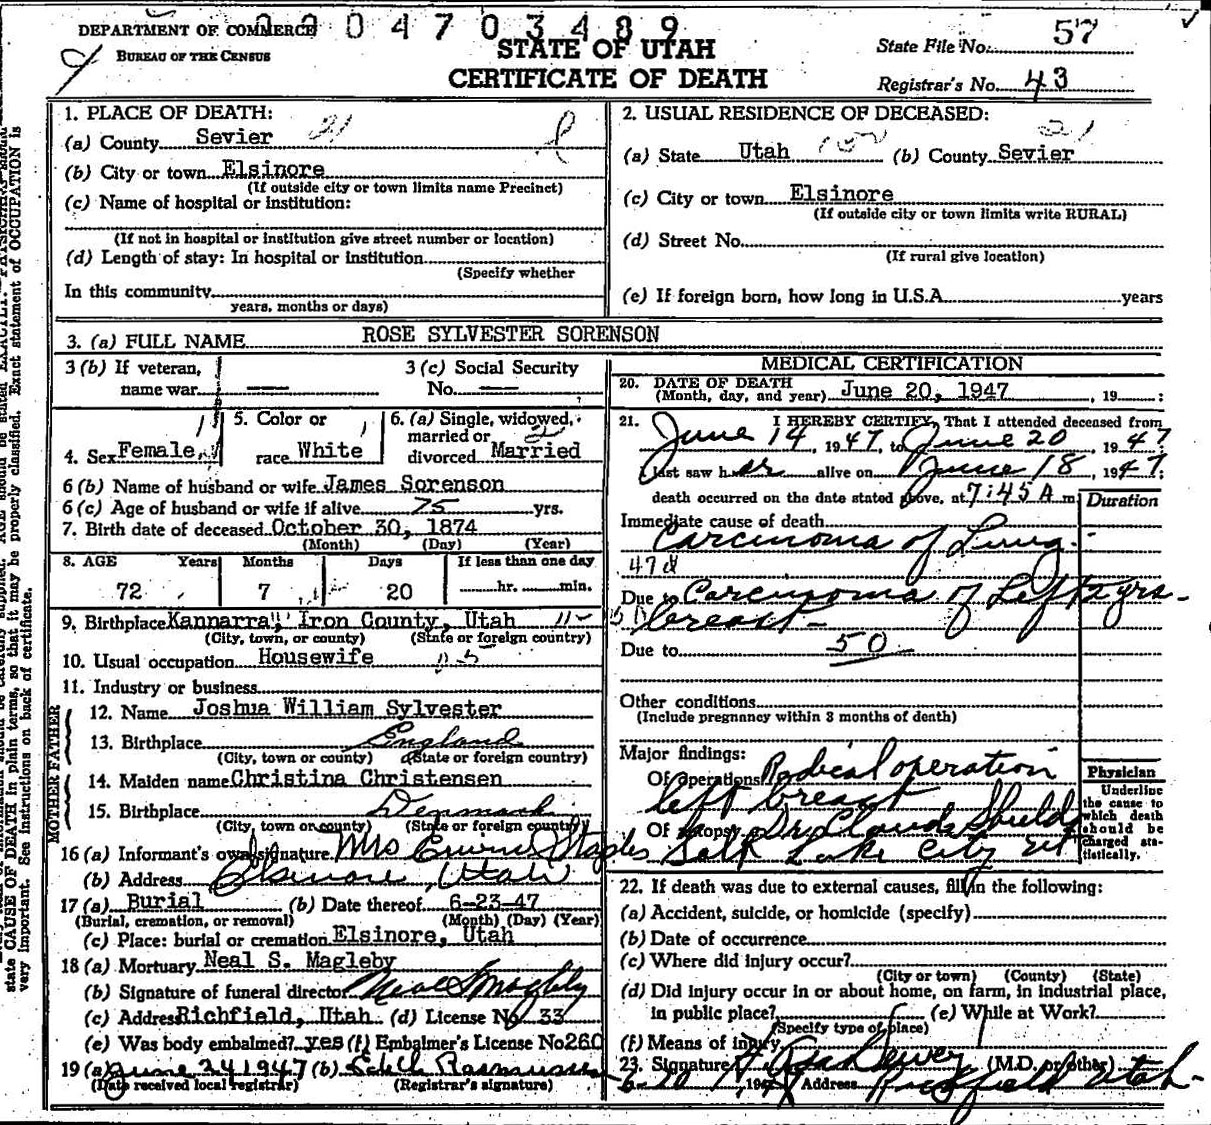 0 0 0 4 7 0 3 4 8 9
DEPARTMENT OF COMMERCE
BUREAU OF THE CENSUS
STATE OF UTAH
CERTIFICATE OF DEATH
State File No. 57
Registrar's No. 43
1. PLACE OF DEATH:
(a) County Sevier 21
(b) City or town Elsinore
(If outside city or town limits name Precinct)
(c) Name of hospital or institution:
(If not in hospital or institution give street number or location)
(d) Length of stay: In hospital or institution
(Specify whether
In this community
years, months or days)
2. USUAL RESIDENCE OF DECEASED:
21
(a) State Utah (b) County Sevier
(c) City or town Elsinore
(If outside city or town limits write RURAL)
(d) Street No.
(If rural give location)
(e) If foreign born, how long in U.S.A. years
3. (a) FULL NAME ROSE SYLVESTER SORENSON
3 (b) If veteran,
name war
3 (c) Social Security
No.
4. Sex Female
5. Color or
race White
6. (a) Single, widowed,
married or
divorced Married
6 (b) Name of husband or wife James Sorenson
6 (c) Age of husband or wife if alive 75 yrs.
7. Birth date of deceased October 30, 1874
(Month) (Day) (Year)
8. AGE Years Months Days If less than one day
72 7 20 hr. min.
9. Birthplace Kannarra, Iron County, Utah
(City, town, or county) (State or foreign country)
10. Usual occupation Housewife
11. Industry or business
FATHER
12. Name Joshua William Sylvester
13. Birthplace England
(City, town or county) (State or foreign country)
MOTHER
14. Maiden name Christina Christensen
15. Birthplace Denmark
(City, town or county) (State or foreign country)
16 (a) Informant's own signature Mrs Staples
(b) Address Elsinore, Utah
17 (a) Burial (b) Date thereof 6-23-47
(Burial, cremation, or removal) (Month) (Day) (Year)
(c) Place: burial or cremation Elsinore, Utah
18 (a) Mortuary Neal S. Magleby
(b) Signature of funeral director Neal S Magleby
(c) Address Richfield, Utah (d) License No. 33
(e) Was body embalmed? yes (f) Embalmer's License No 260
19 (a) June 24 1947 (b) Edith Rasmussen
(Date received local registrar) (Registrar's signature)
MEDICAL CERTIFICATION
20. DATE OF DEATH
(Month, day, and year) June 20, 1947, 19 :
21. I HEREBY CERTIFY, That I attended deceased from
June 14, 1947, to June 20, 1947
last saw her alive on June 18, 1947:
death occurred on the date stated above, at 7:45 A m.
Duration
Immediate cause of death
Carcinoma of Lung.
47d
Due to Carcinoma of Left yrs.
breast
Due to 50
Other conditions
(Include pregnancy within 3 months of death)
Major findings:
Of operations Radical operation
left breast
Of autopsy Dr. Claude Shields
Salt Lake City Ut
Physician
Underline
the cause to
which death
should be
charged sta-
tistically.
22. If death was due to external causes, fill in the following:
(a) Accident, suicide, or homicide (specify)
(b) Date of occurrence
(c) Where did injury occur?
(City or town) (County) (State)
(d) Did injury occur in or about home, on farm, in industrial place,
in public place? (e) While at Work?
(Specify type of place)
(f) Means of injury
23. Signature Dewey (M.D. or other)
1947 Address Richfield Utah
state CAUSE OF DEATH in plain terms, so that it may be properly classified. Exact statement of OCCUPATION is
very important. See instructions on back of certificate.